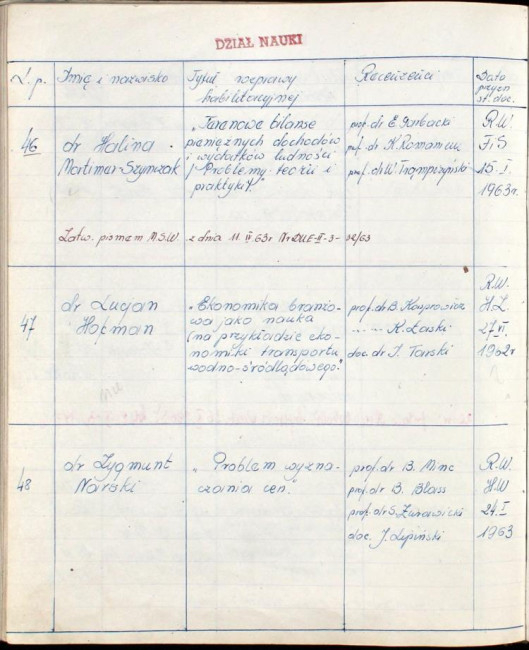 DZIAŁ NAUKI
L. p. Imię i nazwisko Tytuł rozprawy habilitacyjnej Recenzenci Data przyzn st. doc.
46 dr Halina Mortimer-Szymczak
"Terenowe bilanse pieniężnych dochodów i wydatków ludności / Problemy teorii i praktyki/."
prof. dr E. Garbacki
prof. dr K. Romaniuk
prof. dr W. Trąmpczyński
R.W.
F i S
15. I.
1963r.
Zatw. pismem M.S.W. z dnia 11. II 63r Nr DUE-II-3- /63
47 dr Lucjan Hofman
"Ekonomika branżowa jako nauka (na przykładzie ekonomiki transportu wodno-śródlądowego."
prof. dr B. Kasprowicz
" " " K. Łaski
doc. dr I. Tarski
R.W.
H.Z.
27 VI.
1962r
48 dr Zygmunt Narski
"Problem wyznaczania cen.
prof. dr B. Minc
prof. dr B. Blass
prof. dr S. Żurawicki
doc. J. Lipiński
R.W.
H.W
24. I
1963